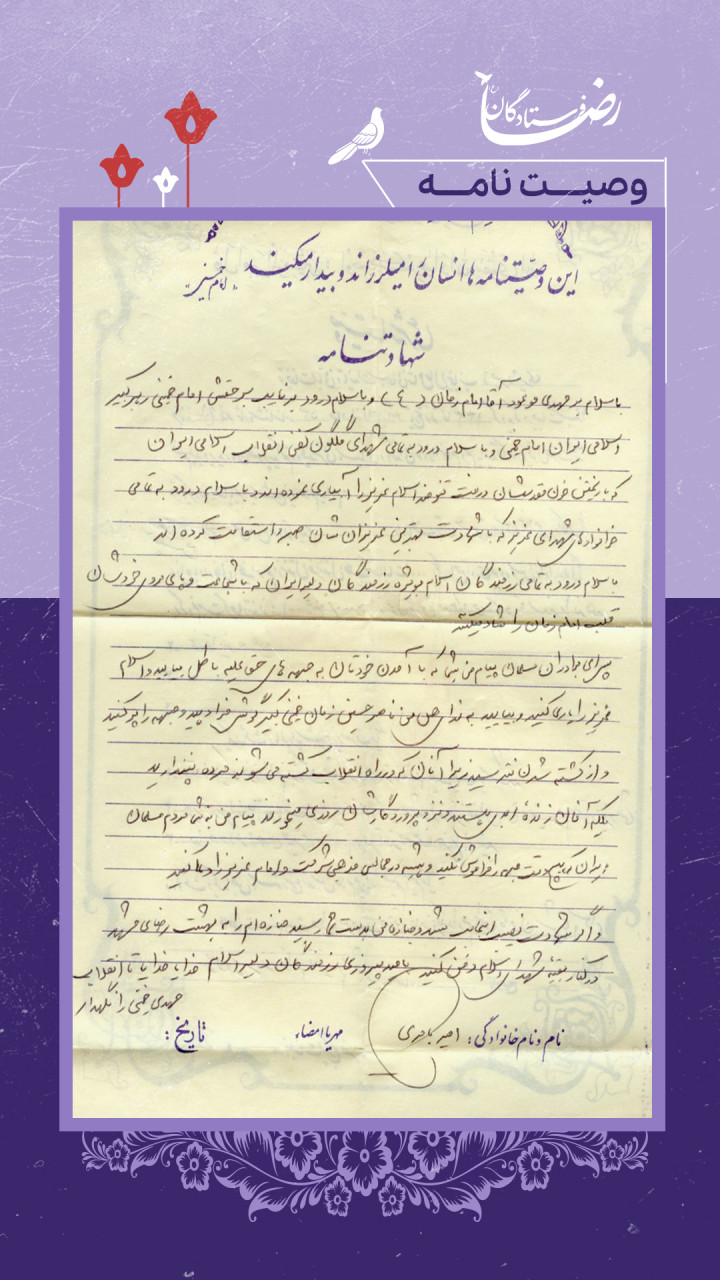 فرستادگان رضا
وصیت نامه
این وصیتنامه ها انسان را میلرزاند و بیدار میکند "امام خمینی"
شهادتنامه
با سلام بر مهدی موعود آقا امام زمان (عج) و با سلام درود بر نایب بر حقش امام خمینی رهبر کبیر
اسلامی ایران امام خمینی و با سلام درود به تمامی شهدای گلگون کفن انقلاب اسلامی ایران
که با ریختن خون مقدسشان درخت تنومند اسلام عزیز را آبیاری نموده اند و با سلام درود به تمامی
خانواده های شهدای عزیز که با شهادت بهترین عزیزان شان صبر و استقامت کرده اند
با سلام درود به تمامی رزمندگان اسلام بویژه رزمندگان دلیر ایران که با شجاعت و پایمردی خودشان
قلب امام زمان را شاد میکنند
برای برادران مسلمان پیام من بشما که با آمدن خودتان به جبهه های حق علیه باطل بیایید و اسلام
عزیز را یاری کنید و بیایید به ندای هل من ناصر حسین زمان خمینی کبیر گوش فرا دهید و جبهه را پر کنید
و از کشته شدن نترسید زیرا آنان که در راه انقلاب کشته می شوند مرده نپندارید
بلکه آنان زنده ابدی هستند و نزد پروردگارشان روزی میخورند پیام من به شما مردم مسلمان
ایران که هیچ وقت جبهه را فراموش نکنید و همیشه در مجالس مذهبی شرکت و امام عزیز را دعا کنید
و اگر شهادت نصیب اینجانب شد و جنازه من بدست شما رسید جنازه ام را به بهشت رضای مشهد
در کنار بقیه شهدای اسلام دفن کنید بامید پیروزی رزمندگان دلیر اسلام خدایا خدایا تا انقلاب
مهدی خمینی را نگهدار
نام و نام خانوادگی: امیر مهر یا امضاء تاریخ: